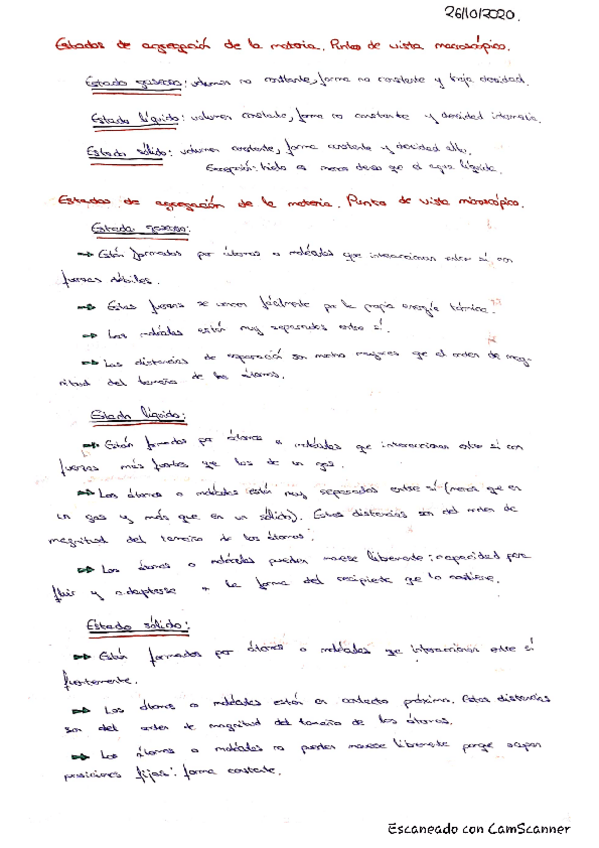 26/10/2020.
Estados de agregación de la materia. Punto de vista macroscópico.
Estado gaseoso: volumen no constante, forma no constante y baja densidad.
Estado líquido: volumen constante, forma no constante y densidad intermedia.
Estado sólido: volumen constante, forma constante y densidad alta.
Excepción: hielo es menos denso que el agua líquida.
Estados de agregación de la materia. Punto de vista microscópico.
Estado gaseoso:
Están formados por átomos o moléculas que interaccionan entre sí con
fuerzas débiles.
Estas fuerzas se vencen fácilmente por la propia energía térmica.
Las moléculas están muy separadas entre sí.
Las distancias de separación son mucho mayores que el orden de mag-
nitud del tamaño de los átomos.
Estado líquido:
Están formados por átomos o moléculas que interaccionan entre sí con
fuerzas más fuertes que las de un gas.
Los átomos o moléculas están muy separados entre sí (menos que en
un gas y más que en un sólido). Estas distancias son del orden de
magnitud del tamaño de los átomos.
Los átomos o moléculas pueden moverse libremente: capacidad para
fluir y adaptarse a la forma del recipiente que lo contiene.
Estado sólido:
Están formados por átomos o moléculas que interaccionan entre sí
fuertemente.
Los átomos o moléculas están en contacto próximo. Estas distancias
son del orden de magnitud del tamaño de los átomos.
Los átomos o moléculas no pueden moverse libremente porque ocupan
posiciones fijas: forma constante.
Escaneado con CamScanner